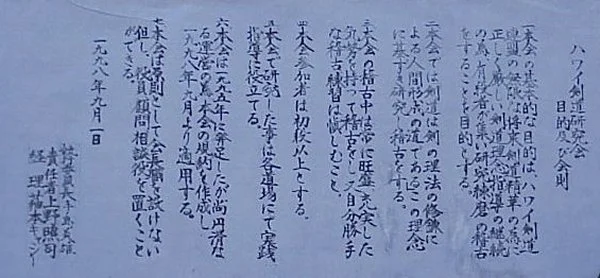 ハワイ剣道研究会
目的及び会則
一、本会の基本的な目的は、ハワイ剣道
連盟の無限な将来剣道精華の為に
正しく厳しい剣道理念指導の継続
の為、有段者が集い研究、琢磨の稽古
をすることを目的とする。
二、本会では剣道は剣の理法の修錬に
よる人間形成の道であるこの理念
に基き研究し稽古をする。
三、本会の稽古中は常に旺盛充実した
気勢を持って稽古をし、又自分勝手
な稽古練習に慎しむこと。
四、本会参加者は初段以上とする。
五、本会で研究した事は各道場にて実践
指導に役立てる。
六、本会は一九九五年に発足したが尚円滑な
る運営の為、本会の規約を作成し
一九九八年九月より適用する。
七、本会は原則として会長職を設けない
但し、役員顧問相談役を置くこと
ができる。
一九九八年九月一日
責任者上野照司
経理 福本キャシー